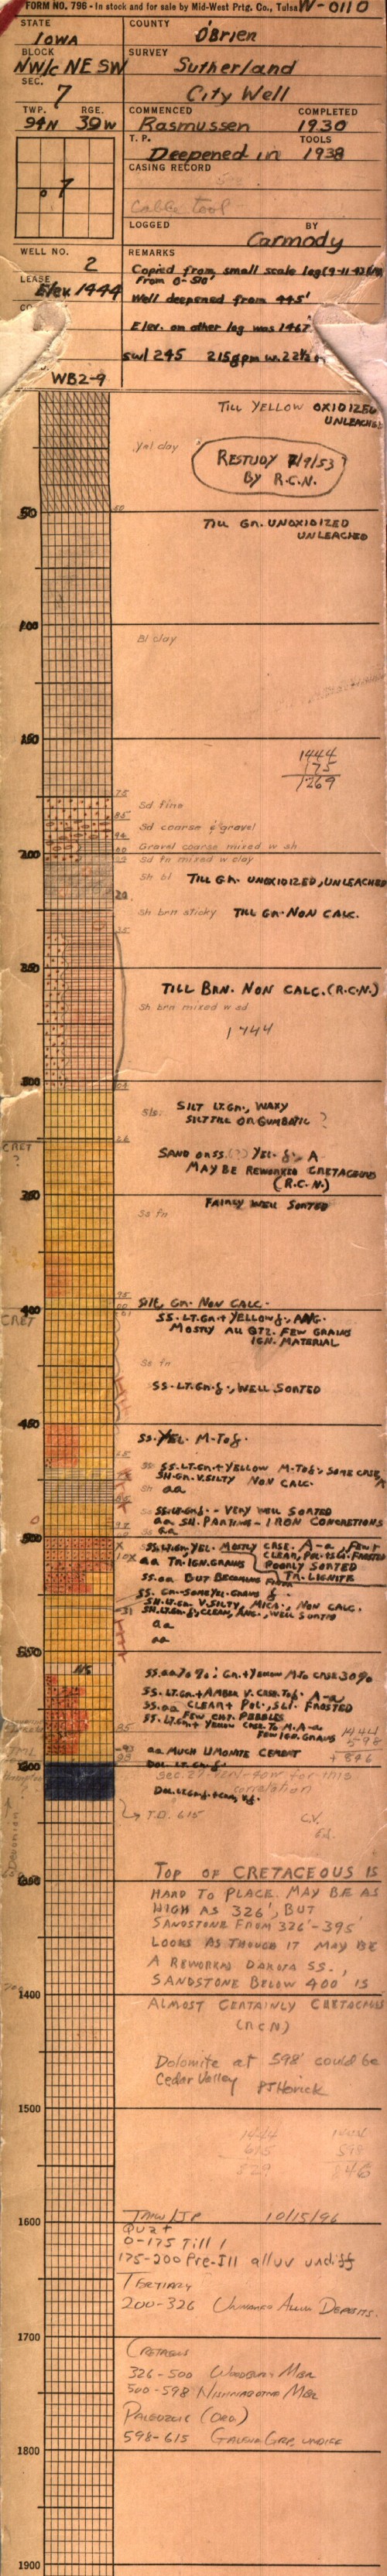 FORM NO. 796 - In stock and for sale by Mid-West Prtg. Co., Tulsa W-0110
STATE
IOWA
COUNTY
O'Brien
BLOCK
NW/c NE SW
SURVEY
Sutherland
SEC.
7
City Well
TWP. RGE.
94N 39W
COMMENCED COMPLETED
Rasmussen 1930
T. P. TOOLS
Deepened in 1938
CASING RECORD
Cable tool
7
LOGGED BY
Carmody
WELL NO.
2
REMARKS
Copied from small scale log
From 0-510'
LEASE
Elev. 1444
Well deepened from 445'
Elev. on other log was 1467'
swl 245 215gpm w. 22½
WB2-9
TILL YELLOW OXIDIZED
UNLEACHED
Yel clay
RESTUDY 7/9/53
BY R.C.N.
50
TILL GR. UNOXIDIZED
UNLEACHED
100
Bl clay
150
1444
175
1269
75
Sd fine
85
Sd coarse & gravel
Gravel coarse mixed w sh
200
Sd fn mixed w clay
Sh bl TILL GR. UNOXIDIZED, UNLEACHED
20
Sh brn sticky TILL GR. NON CALC.
35
250
TILL BRN. NON CALC. (R.C.N.)
Sh brn mixed w sd
1744
300
SILT LT. GR., WAXY
SILT TILL OR GUMBOTIL ?
26
CRET
?
SAND OR SS. (?) YEL. f. A
MAY BE REWORKED CRETACEOUS
(R.C.N.)
FAIRLY WELL SORTED
Ss fn
95
400
SILT GR. NON CALC.
CRET
SS. LT. GR. + YELLOW f., ANG.
MOSTLY ALL QTZ. FEW GRAINS
IGN. MATERIAL
Ss fn
SS. LT. GR. f., WELL SORTED
450
SS. YEL. M-TO f.
SS. LT. GR. + YELLOW M-TO f. SOME CRSE A
SH. GR. V. SILTY NON CALC.
Sh aa
SS. LT. GR. f. - VERY WELL SORTED
aa SH. PARTING - IRON CONCRETIONS
aa
500
SS. LT. GR. YEL. MOSTLY CRSE. A-a, FEW r
CLEAR, POL. FROSTED
aa TR. IGN. GRAINS POORLY SORTED
SS. aa BUT BECOMING TR. LIGNITE
SS. GR. - SOME YEL. GRAINS f.
SH. LT. GR. V. SILTY, MICA., NON CALC.
SH. LT. GR. f. CLEAN, ANG., WELL SORTED
aa
aa
550
NS
SS. aa 70%; GR. + YELLOW M TO CRSE 30%
SS. LT. GR. + AMBER V. CRSE. TO f. A-a
SS. aa CLEAR + POL., SLI. FROSTED
FEW CHT. PEBBLES
SS. LT. GR. + YELLOW CRSE. TO M. A-a
FEW IGN. GRAINS
85
1444
598
+846
aa MUCH LIMONITE CEMENT
600
correlation
T.D. 615
TOP OF CRETACEOUS IS
HARD TO PLACE. MAY BE AS
HIGH AS 326', BUT
SANDSTONE FROM 326'-395'
LOOKS AS THOUGH IT MAY BE
A REWORKED DAKOTA SS.,
SANDSTONE BELOW 400' IS
ALMOST CERTAINLY CRETACEOUS
(RCN)
1400
Dolomite at 598' could be
Cedar Valley PJ Horick
1500
1444
615
829
846
1600
10/15/96
Quat
0-175 Till
175-200 Pre-Ill alluv undiff
TERTIARY
200-326 Unnamed Alluv Deposits.
1700
Cretaceous
326-500 Woodbury Mbr
500-598 Nishnabotna Mbr
PALEOZOIC (Ord)
598-615 Galena Grp. undiff
1800
1900